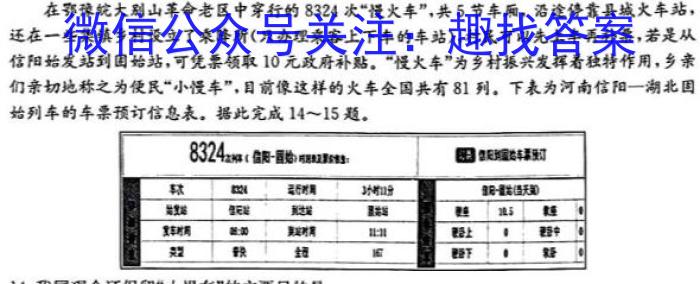 在鄂豫皖大别山革命老区中穿行的8324次“慢火车”，共5节车厢，沿途停靠县城火车站，
还在一
微信公众号关注：趣找答案
若是从
信阳始发站到固始站，可凭票领取10元政府补贴。“慢火车”为乡村振兴发挥着独特作用，乡亲
们亲切地称之为便民“小慢车”，目前像这样的火车全国共有81列。下表为河南信阳—湖北固
始列车的车票预订信息表。据此完成14～15题。
8324次列车（信阳-固始）
信阳到固始车票预订
车次 8324 运行时间 3小时11分
信阳-固始(当天到)
始发站 信阳站 到达站 固始站
硬座 10.5 软座 0
发车时间 08:00 到站时间 11:11
硬卧上 0 硬卧中 0
类型 普快 全程 167
硬卧下 0 软卧 0